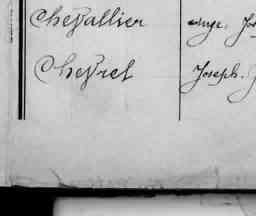 Chevallier Ange. Jos
Chevrel Joseph. J